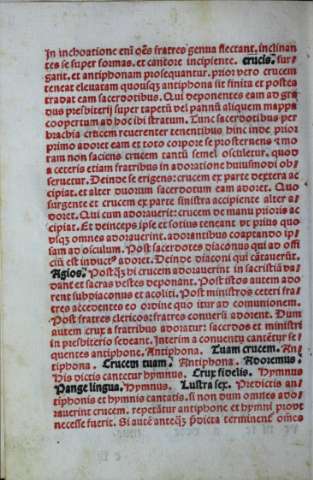 In inchoatione em̄ oēs fratres genua flectant. inclinan
tes se super formas. et cantore incipiente. Crucis. sur-
gant. et antiphonam prosequantur. prior vero crucem
teneat eleuatam quousq̄ antiphona sit finita et postea
tradat eam sacerdotibus. Qui deponentes eam ad gra
dus presbiterij super tapetū vel pannū aliquem mappa
coopertum ad hoc ibi stratum. Tunc sacerdotibus per
brachia crucem reuerenter tenentibus hinc inde prior
primo adoret eam et toto corpore se prosternens ⁊ mo
ram non faciens crucem tantū semel osculetur. quod
a ceteris etiam fratribus in adoratione huiusmodi ob-
seruetur. Deinde se erigens: crucem ex parte dextera ac
cipiat. et alter duorum sacerdotum eam adoret. Quo
surgente et crucem ex parte sinistra accipiente alter a/
doret. Qui cum adorauerit: crucem de manu prioris ac
cipiat. Et deinceps ipse et socius teneant vt prius quo
usq̄ omnes adorauerint. adorantibus coaptando ip/
sam ad osculum. Post sacerdotes diaconus qui ad offi
ciū est induct⁹ adoret. Deinde diaconi qui cātauerūt.
Agios. Postq̄ hi crucem adorauerint in sacristiā va
dant et sacras vestes deponant. Post istos autem ado
rent subdiaconus et acoliti. Post ministros ceteri fra/
tres accedentes eo ordine quo itur ad comunionem.
Post fratres clericos: fratres conuersi adorent. Dum
autem crux a fratribus adoratur: sacerdos et ministri
in presbiterio sedeant. Interim a conuentu cantētur se
quentes antiphone. Antiphona. Tuam crucem. An
tiphona. Crucem tuam. Antiphona. Adoremus.
His dictis cantetur hymnus. Crux fidelis. Hymnus
Pange lingua. Hymnus. Lustra sex. Predictis an/
tiphonis et hymnis cantatis. si non dum omnes ado/
rauerint crucem. repetātur antiphone et hymni prout
necesse fuerit. Si autē anteq̄ p̄dicta terminent omēs